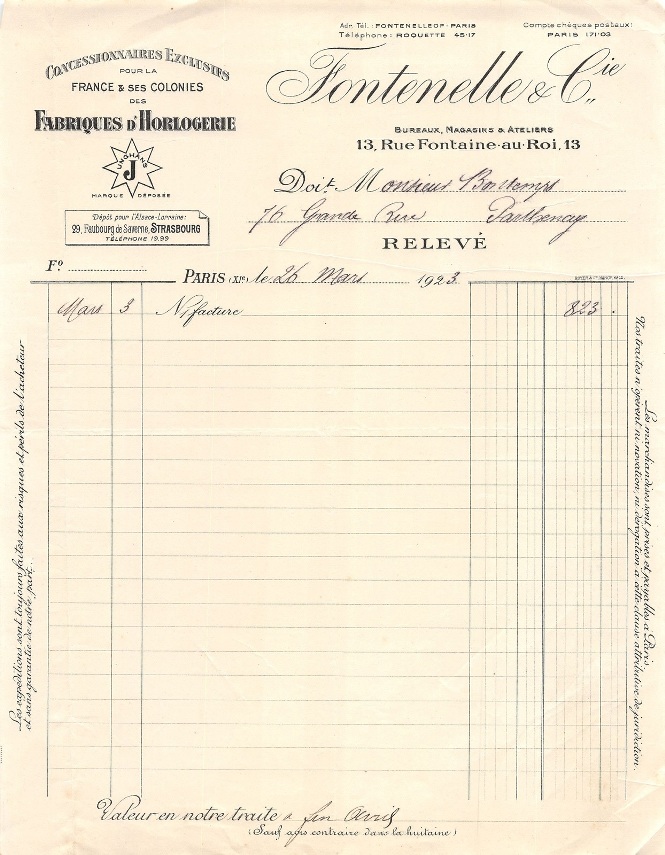 Adr. Tél.: FONTENELLEOF-PARIS
Téléphone: ROQUETTE 45-17
Compte chèques postaux:
PARIS 171-03
CONCESSIONNAIRES EXCLUSIFS
POUR LA
FRANCE & SES COLONIES
DES
FABRIQUES D'HORLOGERIE
JUNGHANS
J
MARQUE DÉPOSÉE
Dépôt pour l'Alsace-Lorraine:
29, Faubourg de Saverne, STRASBOURG
TÉLÉPHONE 19.99
Fontenelle & Cie
BUREAUX, MAGASINS & ATELIERS
13, Rue Fontaine-au-Roi, 13
Doit Monsieur Bontemps
76 Grande Rue Parthenay
RELEVÉ
Fo
PARIS (XIe) le 26 Mars 1923
Mars 3 N/facture 823 .
Les expéditions sont toujours faites aux risques et périls de l'acheteur
et sans garantie de notre part.
Les marchandises sont prises et payables à Paris.
Nos traites n'opèrent ni novation, ni dérogation à cette clause attributive de juridiction.
Valeur en notre traite à fin Avril
(Sauf avis contraire dans la huitaine)